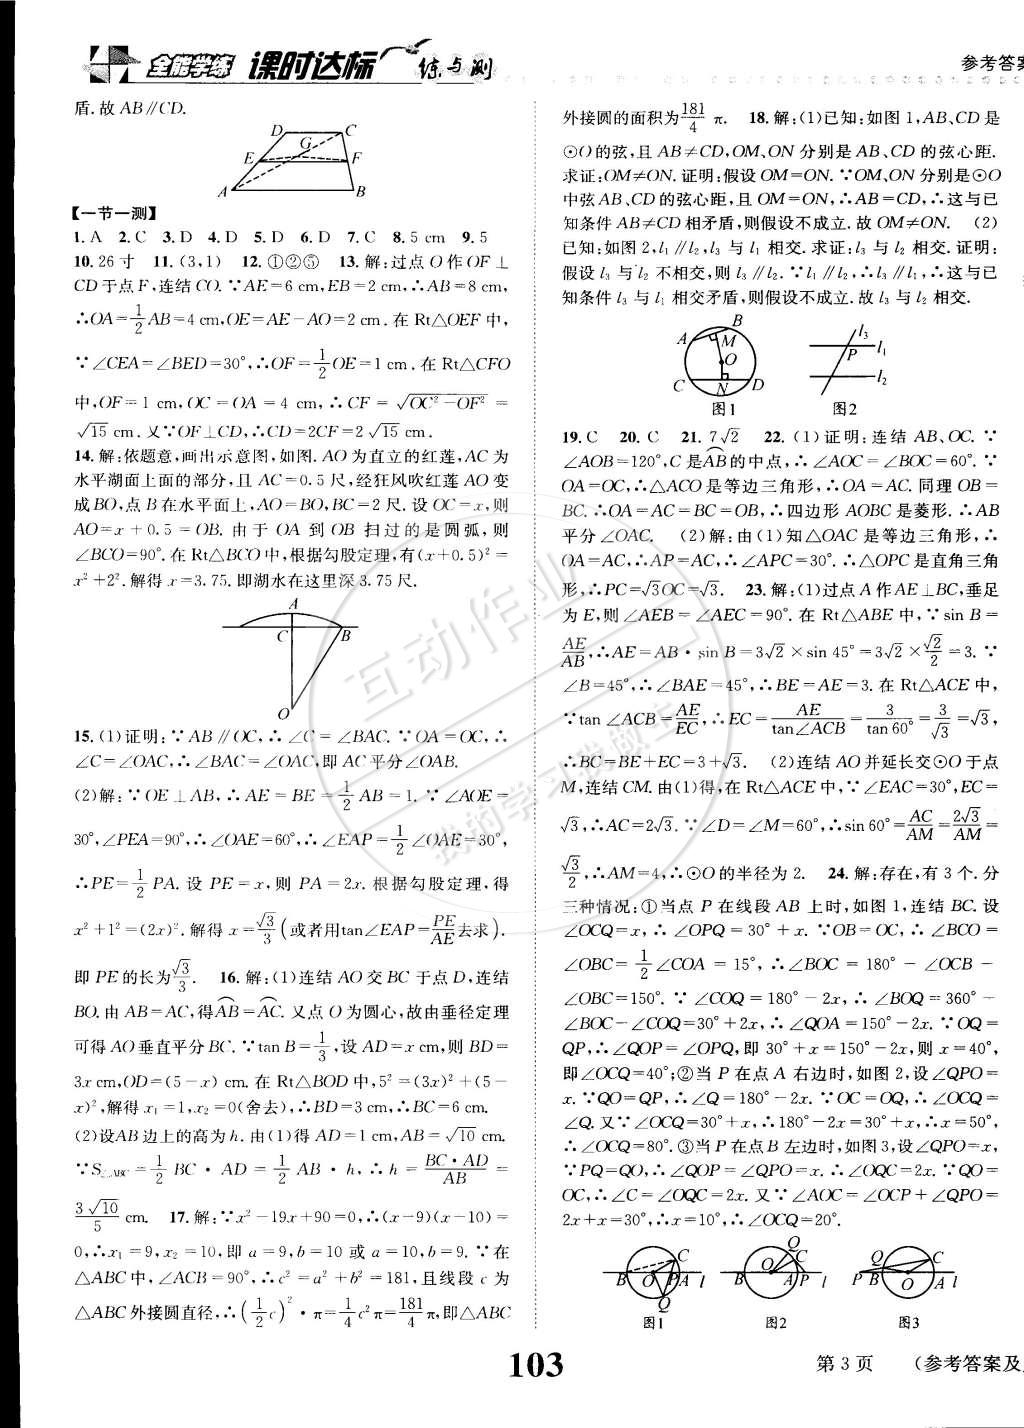 全能学练 课时达标 练与测
参考答案
盾.故AB∥CD.
D C G E F A B
【一节一测】
1.A 2.C 3.D 4.D 5.D 6.D 7.C 8.5 cm 9.5
10.26寸 11.(3,1) 12.①②⑤ 13.解:过点O作OF⊥
CD于点F,连结CO.∵AE=6 cm,EB=2 cm,∴AB=8 cm,
∴OA=1/2AB=4 cm,OE=AE-AO=2 cm.在Rt△OEF中,
∵∠CEA=∠BED=30°,∴OF=1/2OE=1 cm.在Rt△CFO
中,OF=1 cm,OC=OA=4 cm,∴CF=√(OC²-OF²)=
√15 cm.又∵OF⊥CD,∴CD=2CF=2√15 cm.
14.解:依题意,画出示意图,如图.AO为直立的红莲,AC为
水平湖面上面的部分,且AC=0.5尺,经狂风吹红莲AO变
成BO,点B在水平面上,AO=BO,BC=2尺.设OC=x,则
AO=x+0.5=OB.由于OA到OB扫过的是圆弧,则
∠BCO=90°.在Rt△BCO中,根据勾股定理,有(x+0.5)²=
x²+2².解得x=3.75.即湖水在这里深3.75尺.
A C B O
15.(1)证明:∵AB∥OC,∴∠C=∠BAC.∵OA=OC,∴
∠C=∠OAC,∴∠BAC=∠OAC,即AC平分∠OAB.
(2)解:∵OE⊥AB,∴AE=BE=1/2AB=1.∵∠AOE=
30°,∠PEA=90°,∴∠OAE=60°,∴∠EAP=1/2∠OAE=30°,
∴PE=1/2PA.设PE=x,则PA=2x.根据勾股定理,得
x²+1²=(2x)².解得x=√3/3(或者用tan∠EAP=PE/AE去求).
即PE的长为√3/3. 16.解:(1)连结AO交BC于点D,连结
BO.由AB=AC,得⌒AB=⌒AC.又点O为圆心,故由垂径定理
可得AO垂直平分BC.∵tan B=1/3,设AD=x cm,则BD=
3x cm,OD=(5-x) cm.在Rt△BOD中,5²=(3x)²+(5-
x)²,解得x₁=1,x₂=0(舍去),∴BD=3 cm,∴BC=6 cm.
(2)设AB边上的高为h.由(1)得AD=1 cm,AB=√10 cm.
∵S△ABC=1/2BC·AD=1/2AB·h,∴h=BC·AD/AB=
3√10/5 cm. 17.解:∵x²-19x+90=0,∴(x-9)(x-10)=
0,∴x₁=9,x₂=10,即a=9,b=10或a=10,b=9.∵在
△ABC中,∠ACB=90°,∴c²=a²+b²=181,且线段c为
△ABC外接圆直径,∴(1/2c)²·π=1/4c²π=181/4π,即△ABC
外接圆的面积为181/4π. 18.解:(1)已知:如图1,AB、CD是
⊙O的弦,且AB≠CD,OM、ON分别是AB、CD的弦心距.
求证:OM≠ON.证明:假设OM=ON.∵OM、ON分别是⊙O
中弦AB、CD的弦心距,且OM=ON,∴AB=CD,∴这与已
知条件AB≠CD相矛盾,则假设不成立.故OM≠ON. (2)
已知:如图2,l₁∥l₂,l₃与l₁相交.求证:l₃与l₂相交.证明:
假设l₃与l₂不相交,则l₃∥l₂.∵l₁∥l₂,∴l₃∥l₁,∴这与已
知条件l₃与l₁相交矛盾,则假设不成立.故l₃与l₂相交.
A B M O C N D l₃ P l₁ l₂
图1 图2
19.C 20.C 21.7√2 22.(1)证明:连结AB、OC.∵
∠AOB=120°,C是⌒AB的中点,∴∠AOC=∠BOC=60°.∵
OA=OC,∴△ACO是等边三角形,∴OA=AC.同理OB=
BC.∴OA=AC=BC=OB,∴四边形AOBC是菱形.∴AB
平分∠OAC. (2)解:由(1)知△OAC是等边三角形,∴
OA=AC,∴AP=AC,∴∠APC=30°.∴△OPC是直角三角
形,∴PC=√3OC=√3. 23.解:(1)过点A作AE⊥BC,垂足
为E,则∠AEB=∠AEC=90°.在Rt△ABE中,∵sin B=
AE/AB,∴AE=AB·sin B=3√2×sin 45°=3√2×√2/2=3.∵
∠B=45°,∴∠BAE=45°,∴BE=AE=3.在Rt△ACE中,
∵tan∠ACB=AE/EC,∴EC=AE/tan∠ACB=3/tan60°=3/√3=√3,
∴BC=BE+EC=3+√3. (2)连结AO并延长交⊙O于点
M,连结CM.由(1)得,在Rt△ACE中,∵∠EAC=30°,EC=
√3,∴AC=2√3.∵∠D=∠M=60°,∴sin 60°=AC/AM=2√3/AM=
√3/2,∴AM=4,∴⊙O的半径为2. 24.解:存在,有3个.分
三种情况:①当点P在线段AB上时,如图1,连结BC.设
∠OCQ=x,∴∠OPQ=30°+x.∵OB=OC,∴∠BCO=
∠OBC=1/2∠COA=15°,∴∠BOC=180°-∠OCB-
∠OBC=150°.∵∠COQ=180°-2x,∴∠BOQ=360°-
∠BOC-∠COQ=30°+2x,∴∠QOA=150°-2x.∵OQ=
QP,∴∠QOP=∠OPQ,即30°+x=150°-2x,则x=40°,
即∠OCQ=40°;②当P在点A右边时,如图2,设∠QPO=
x.∵QO=QP,∴∠Q=180°-2x.∵OC=OQ,∴∠OCQ=
∠Q.又∵∠OCQ=30°+x,∴180°-2x=30°+x,∴x=50°,
∴∠OCQ=80°.③当P在点B左边时,如图3,设∠QPO=x,
∵PQ=QO,∴∠QOP=∠QPO=x.∴∠OQC=2x.∵QO=
OC,∴∠C=∠OQC=2x.又∵∠AOC=∠OCP+∠QPO=
2x+x=30°,∴x=10°,∴∠OCQ=20°.
B O P A l C Q Q C B O A P l Q C P B O A l
图1 图2 图3
互动作业
我的学习我做主
103 第3页 (参考答案及